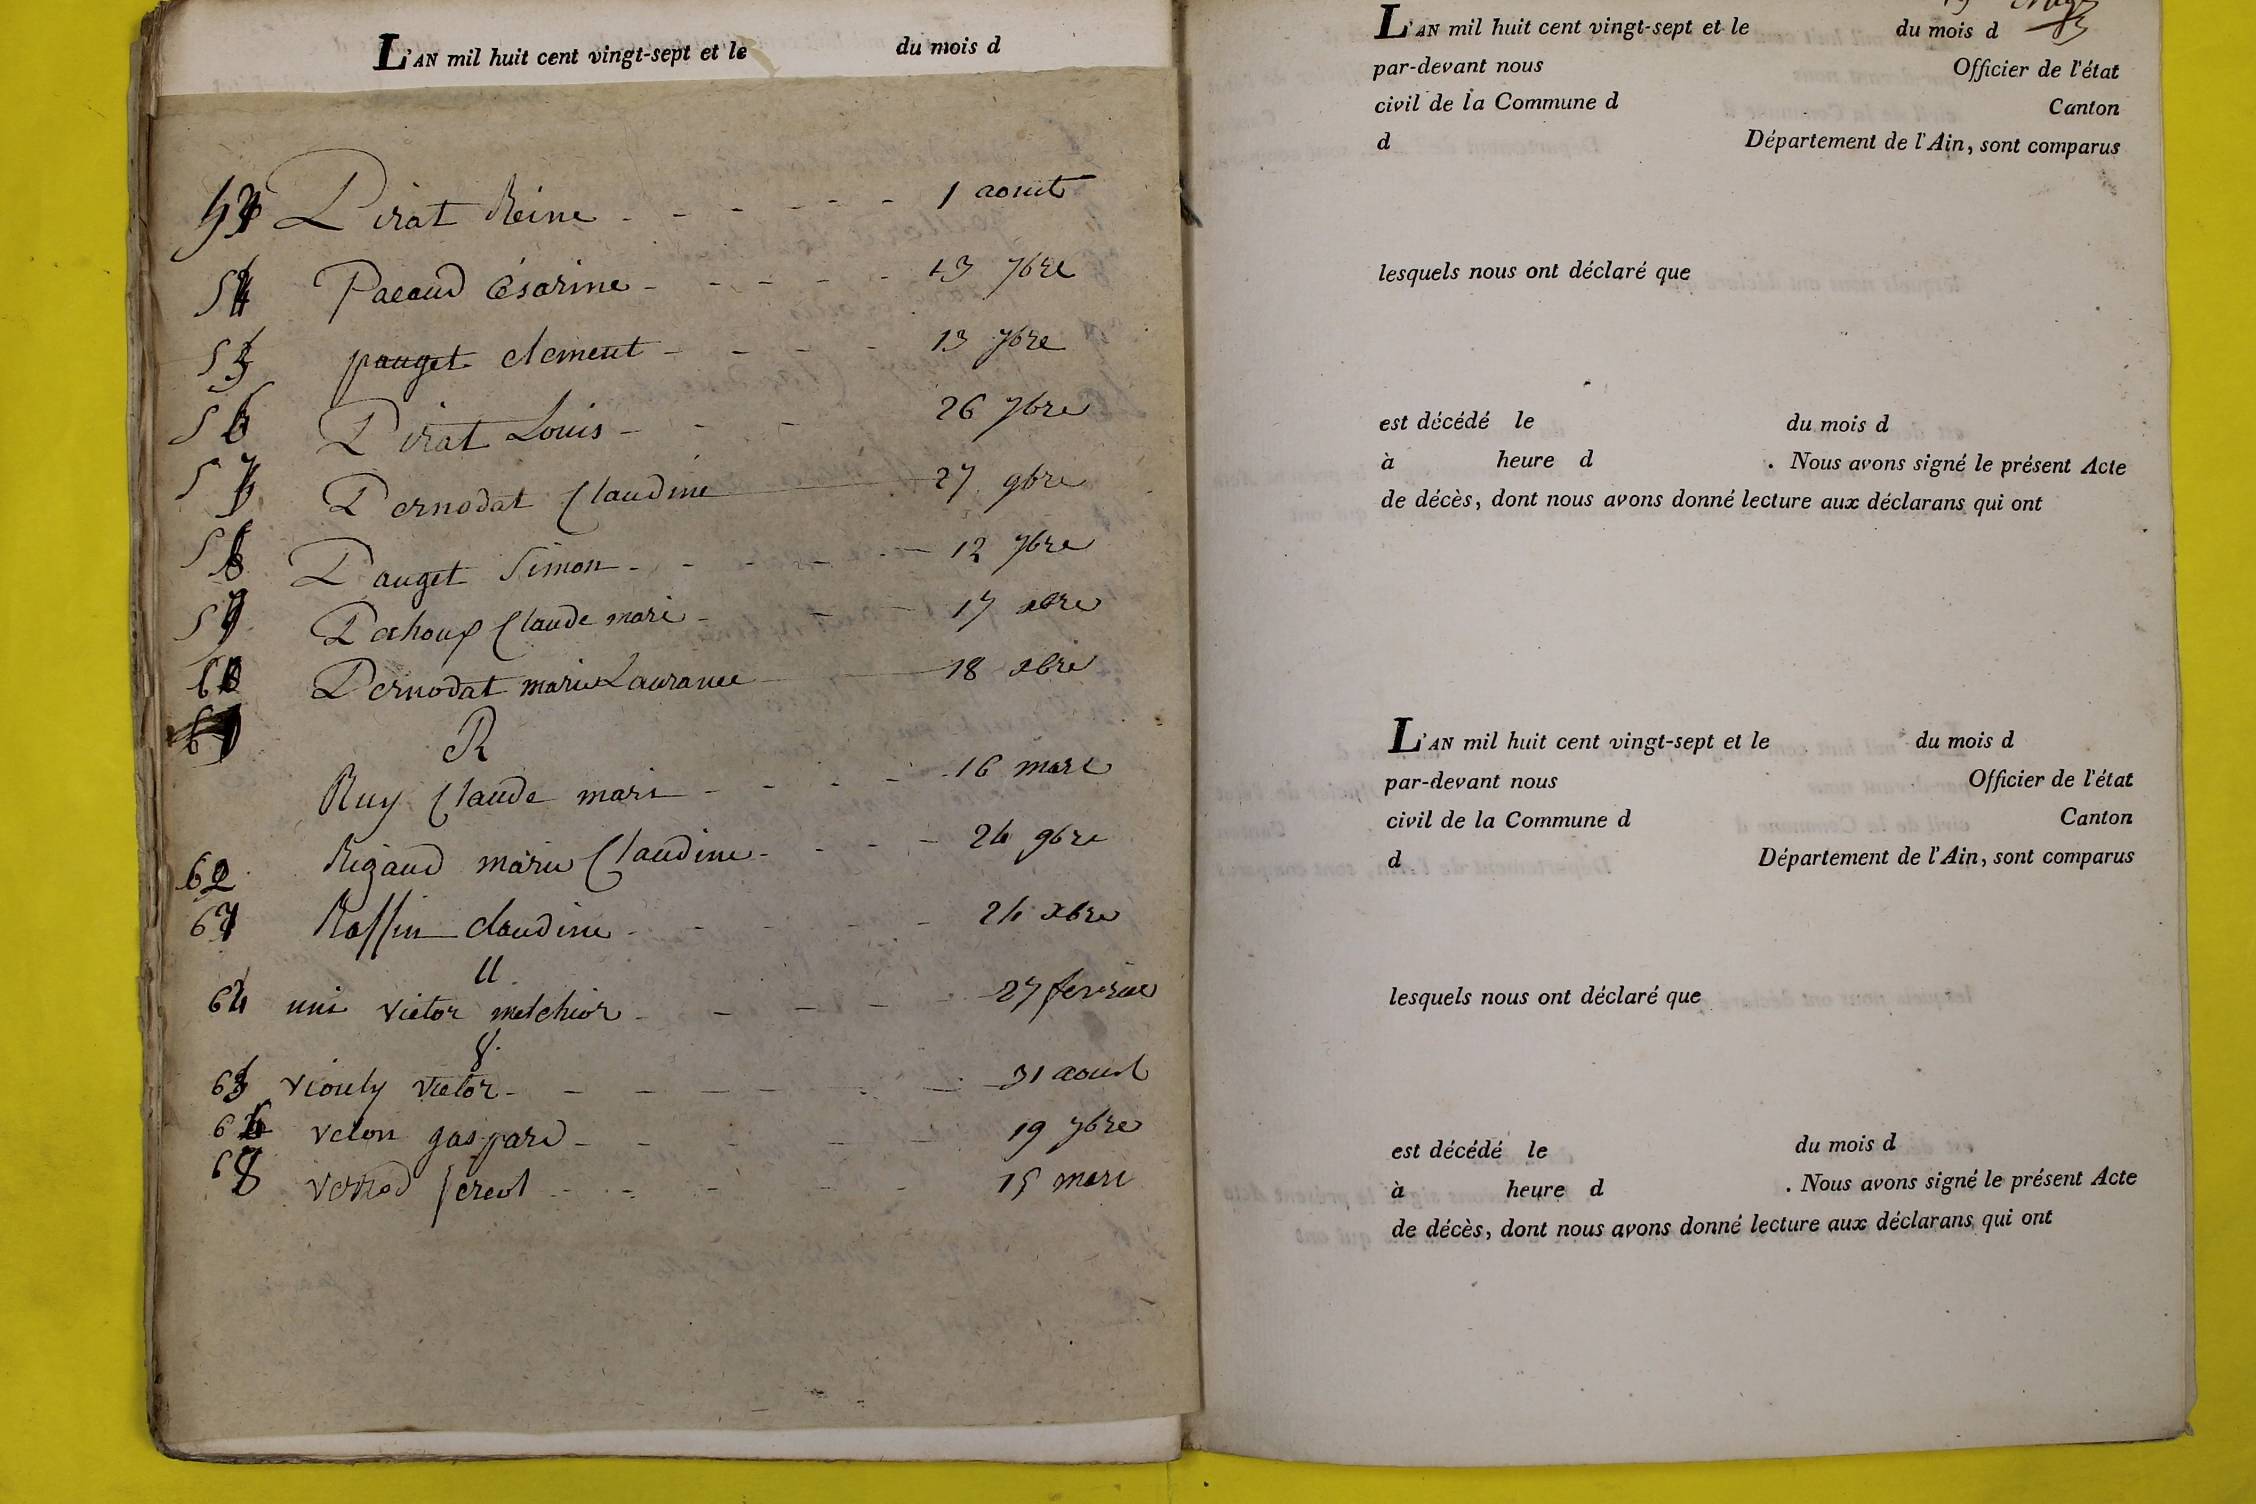 L'AN mil huit cent vingt-sept et le du mois d
53 Pirat Reine - - - - - - 1 aout
54 Pacaud Césarine - - - - - 13 7bre
55 pauget clement - - - - 13 7bre
56 Pirat Louis - - - 26 7bre
57 Pernodat Claudine 27 9bre
58 Pauget Simon - - - - - 12 7bre
59 Claude mari - - - 17 xbre
60 Pernodat marie Laurance 18 xbre
61
R
Ruy Claude mari - - - - 16 mars
62 Rigaud marie Claudine - - - - 24 9bre
63 Roffin claudine - - - - - 24 xbre
U
64 uni victor melchior - - - - 27 fevrier
V
65 viouly victor - - - - - - 31 aout
66 velon gaspard - - - - - 19 7bre
67 fereol - - - - - 15 mars
L'AN mil huit cent vingt-sept et le du mois d
par-devant nous Officier de l'état
civil de la Commune d Canton
d Département de l'Ain, sont comparus
lesquels nous ont déclaré que
est décédé le du mois d
à heure d . Nous avons signé le présent Acte
de décès, dont nous avons donné lecture aux déclarans qui ont
L'AN mil huit cent vingt-sept et le du mois d
par-devant nous Officier de l'état
civil de la Commune d Canton
d Département de l'Ain, sont comparus
lesquels nous ont déclaré que
est décédé le du mois d
à heure d . Nous avons signé le présent Acte
de décès, dont nous avons donné lecture aux déclarans qui ont